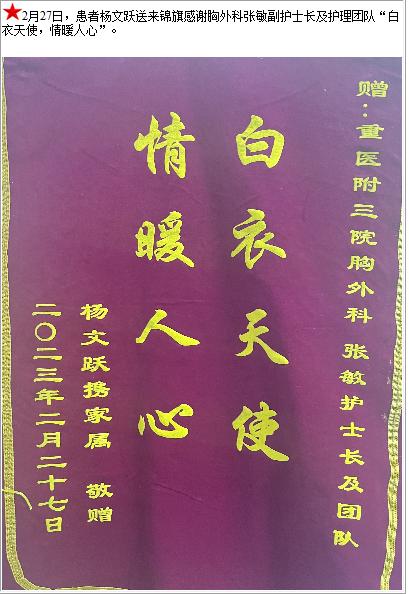 ★2月27日，患者杨文跃送来锦旗感谢胸外科张敏副护士长及护理团队“白
衣天使，情暖人心”。
赠：重医附三院胸外科 张敏护士长及团队
白衣天使
情暖人心
杨文跃携家属 敬赠
二〇二三年二月二十七日